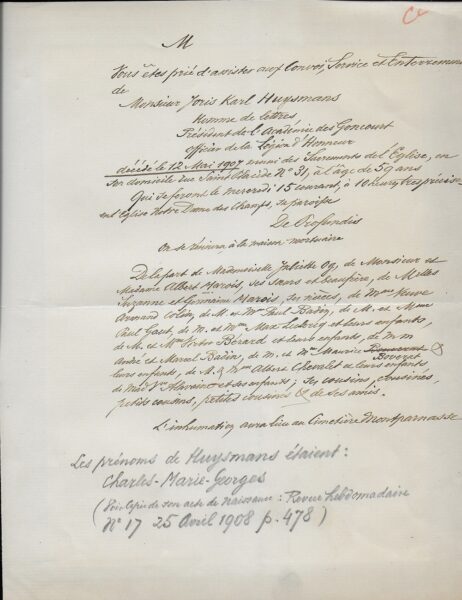 Ce
M
Vous êtes prié d'assister aux Convoi, Service et Enterrement
de
Monsieur Joris Karl Huysmans
homme de lettres,
Président de l'Académie des Goncourt
officier de la Légion d'Honneur
décédé le 12 Mai 1907 muni des Sacrements de l'Eglise, en
son domicile rue Saint Placide N° 31, à l'âge de 59 ans
Qui se feront le Mercredi 15 courant, à 10 heures très précises
en l'Eglise Notre Dame des Champs, sa paroisse
De Profundis
On se réunira à la maison mortuaire
De la part de Mademoiselle Juliette Og, de Monsieur et
Madame Albert Marois, ses sœurs et beau frère, de Melles
Suzanne et Germaine Marois, ses nièces, de Mme Veuve
Armand Colin, de M. et Mme Paul Badin, de M. et Mme
Paul Gaet, de M. et Mme Max Leclerc et leurs enfants,
de M. et Mme Victor Bérard et leurs enfants, de M M
André et Marcel Badin, de M. et Mme Maurice &
Boverat
leurs enfants, de M. & Mme Albert Chevalet et leurs enfants
de Mad Ve et ses enfants, ses cousins, cousines,
petits cousins, petites cousines & de ses amis.
L'inhumation aura lieu au Cimetière Montparnasse
Les prénoms de Huysmans étaient :
Charles-Marie-Georges
(Voir copie de son acte de naissance : Revue hebdomadaire
N° 17 25 Avril 1908 p. 478)